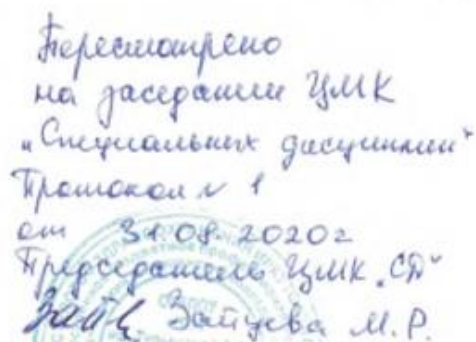 Пересмотрено
на заседании ЦМК
„Специальных дисциплин"
Протокол № 1
от 31.08.2020г
Председатель ЦМК „СД"
Зайцева М.Р.